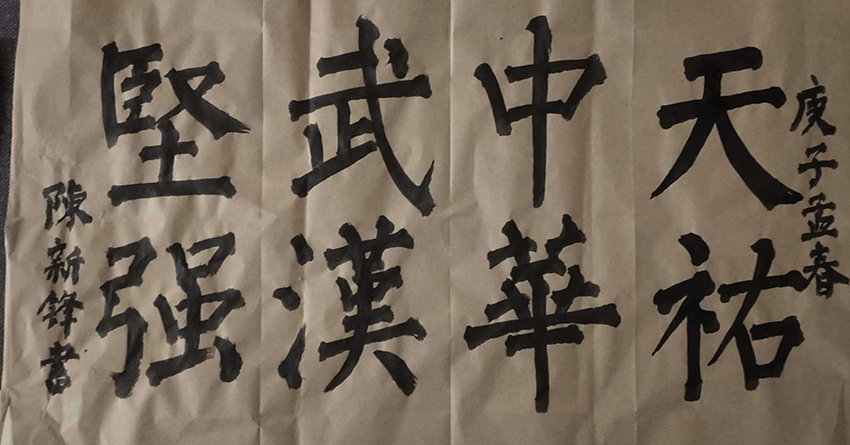 庚子孟春
天祐
中華
武漢
堅强
陳新鋒書